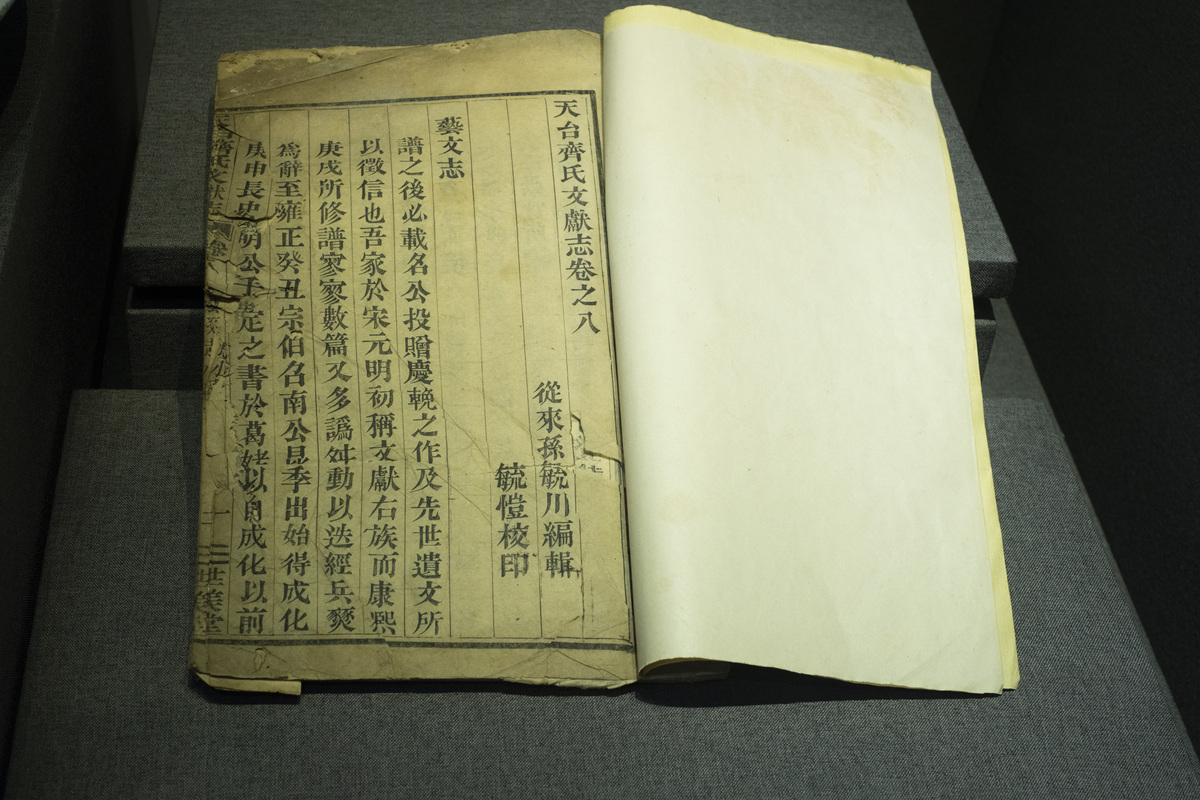 天台齊氏文獻志卷之八
從來孫毓川編輯
毓愷校印
藝文志
譜之後必載名公投贈慶輓之作及先世遺文所
以徵信也吾家於宋元明初稱文獻右族而康熙
庚戌所修譜寥寥數篇又多譌舛動以迭經兵燹
爲辭至雍正癸丑宗伯召南公昆季出始得成化
庚申長史朔公手定之書於葛姥以自成化以前
齊氏文獻志 卷
一 三世美堂